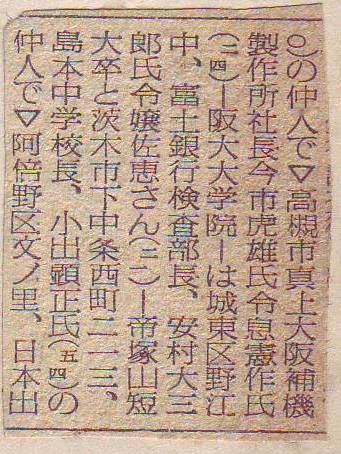 ○)の仲人で▽高槻市真上大阪補機
製作所社長今市虎雄氏令息憲作氏
(二四)―阪大大学院―は城東区野江
中、富士銀行検査部長、安村大三
郎氏令嬢佐恵さん(二一)―帝塚山短
大卒と茨木市下中条西町二一三、
島本中学校長、小出顕正氏(五四)の
仲人で▽阿倍野区文ノ里、日本出